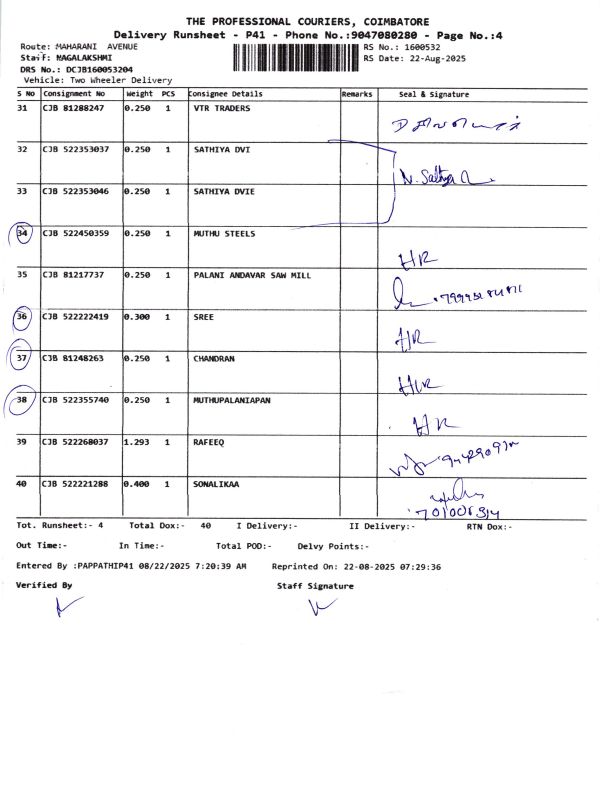 THE PROFESSIONAL COURIERS, COIMBATORE
Delivery Runsheet - P41 - Phone No.:9047080280 - Page No.:4
Route: MAHARANI AVENUE RS No.: 1600532
Staff: NAGALAKSHMI RS Date: 22-Aug-2025
DRS No.: DCJB160053204
Vehicle: Two Wheeler Delivery
S No Consignment No Weight PCS Consignee Details Remarks Seal & Signature
31 CJB 81288247 0.250 1 VTR TRADERS
32 CJB 522353037 0.250 1 SATHIYA DVI
N. Sathya
33 CJB 522353046 0.250 1 SATHIYA DVIE
34 CJB 522450359 0.250 1 MUTHU STEELS
HR
35 CJB 81217737 0.250 1 PALANI ANDAVAR SAW MILL
36 CJB 522222419 0.300 1 SREE
HR
37 CJB 81248263 0.250 1 CHANDRAN
HR
38 CJB 522355740 0.250 1 MUTHUPALANIAPAN
HR
39 CJB 522268037 1.293 1 RAFEEQ
40 CJB 522221288 0.400 1 SONALIKAA
Tot. Runsheet:- 4 Total Dox:- 40 I Delivery:- II Delivery:- RTN Dox:-
Out Time:- In Time:- Total POD:- Delvy Points:-
Entered By :PAPPATHIP41 08/22/2025 7:20:39 AM Reprinted On: 22-08-2025 07:29:36
Verified By Staff Signature